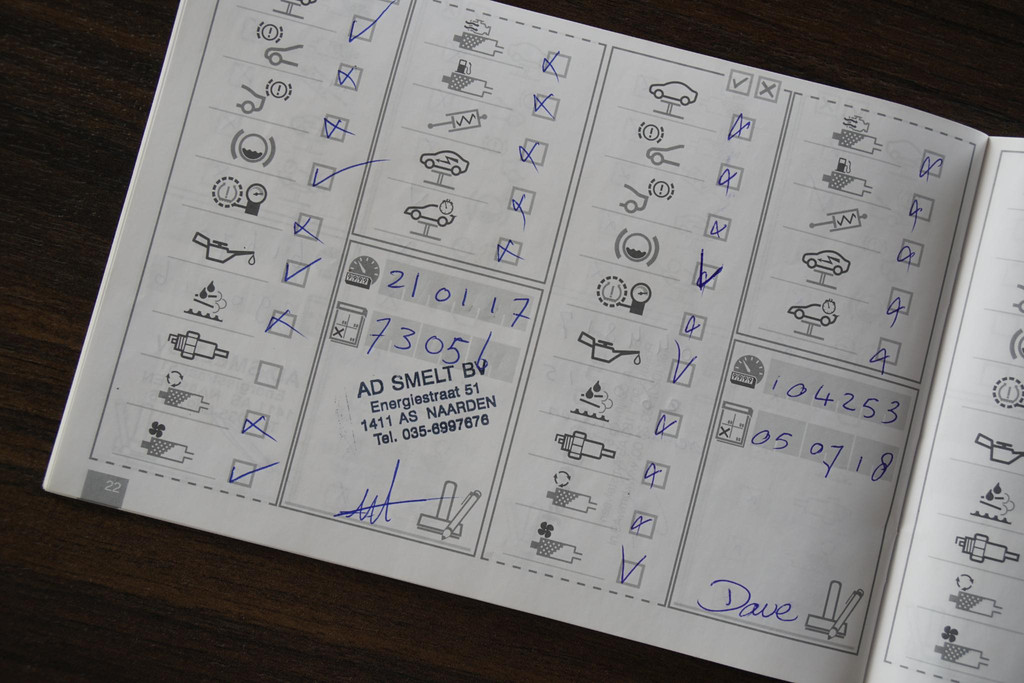 21 01 17
7305
AD SMELT BV
Energiestraat 51
1411 AS NAARDEN
Tel. 035-6997676
104253
05 07 18
Dave
22